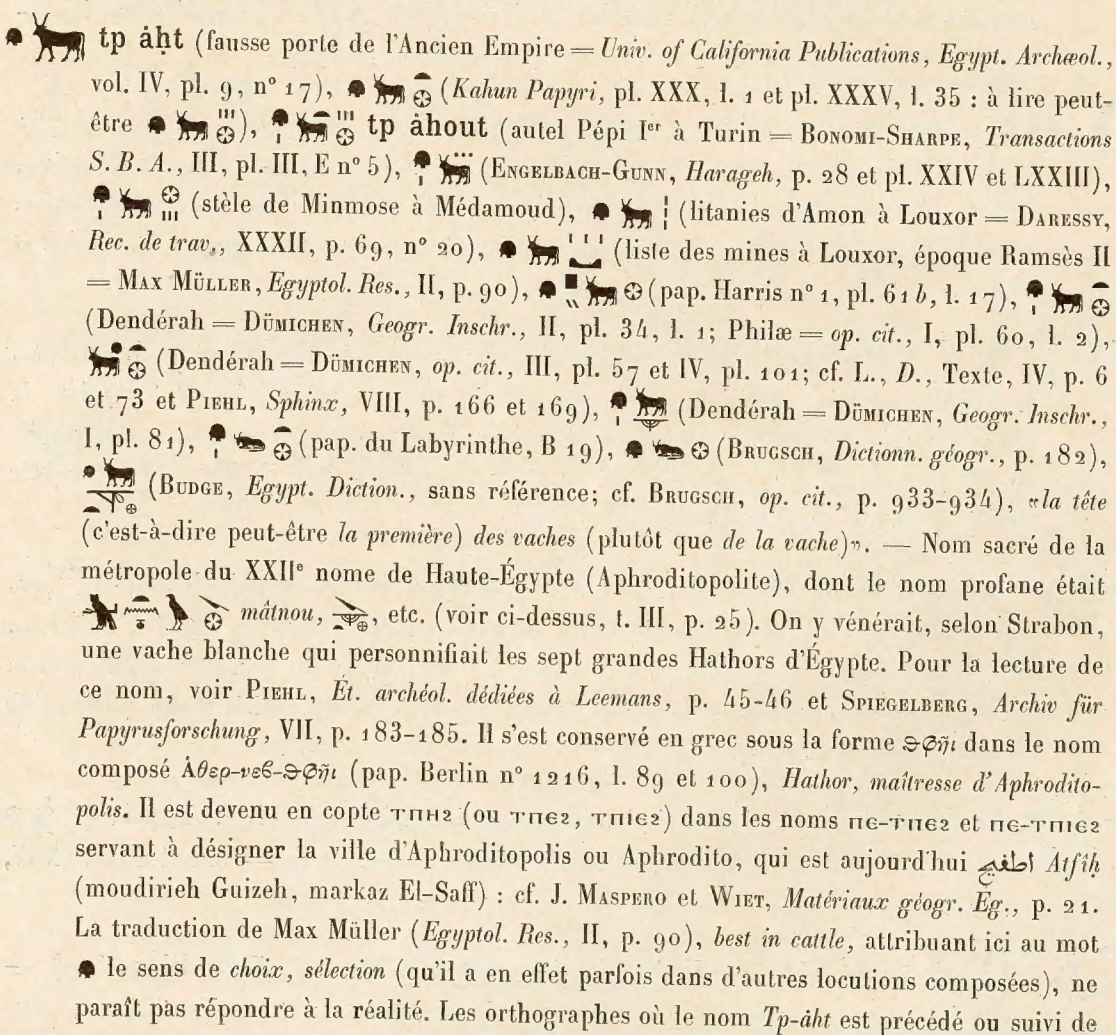 tp åḥt (fausse porte de l'Ancien Empire = Univ. of California Publications, Egypt. Archæol.,
vol. IV, pl. 9, n° 17), (Kahun Papyri, pl. XXX, l. 1 et pl. XXXV, l. 35 : à lire peut-
être ), tp åhout (autel Pépi Iᵉʳ à Turin = Bonomi-Sharpe, Transactions
S. B. A., III, pl. III, E n° 5), (Engelbach-Gunn, Harageh, p. 28 et pl. XXIV et LXXIII),
(stèle de Minmose à Médamoud), (litanies d'Amon à Louxor = Daressy,
Rec. de trav., XXXII, p. 69, n° 20), (liste des mines à Louxor, époque Ramsès II
= Max Müller, Egyptol. Res., II, p. 90), (pap. Harris n° 1, pl. 61 b, l. 17),
(Dendérah = Dümichen, Geogr. Inschr., II, pl. 34, l. 1; Philæ = op. cit., I, pl. 60, l. 2),
(Dendérah = Dümichen, op. cit., III, pl. 57 et IV, pl. 101; cf. L., D., Texte, IV, p. 6
et 73 et Piehl, Sphinx, VIII, p. 166 et 169), (Dendérah = Dümichen, Geogr. Inschr.,
I, pl. 81), (pap. du Labyrinthe, B 19), (Brugsch, Dictionn. géogr., p. 182),
(Budge, Egypt. Diction., sans référence; cf. Brugsch, op. cit., p. 933-934), «la tête
(c'est-à-dire peut-être la première) des vaches (plutôt que de la vache)». — Nom sacré de la
métropole du XXIIᵉ nome de Haute-Égypte (Aphroditopolite), dont le nom profane était
mâtnou, , etc. (voir ci-dessus, t. III, p. 25). On y vénérait, selon Strabon,
une vache blanche qui personnifiait les sept grandes Hathors d'Égypte. Pour la lecture de
ce nom, voir Piehl, Ét. archéol. dédiées à Leemans, p. 45-46 et Spiegelberg, Archiv für
Papyrusforschung, VII, p. 183-185. Il s'est conservé en grec sous la forme ϑφῆι dans le nom
composé Ἀθερ-νεϐ-ϑφῆι (pap. Berlin n° 1216, l. 89 et 100), Hathor, maîtresse d'Aphrodito-
polis. Il est devenu en copte ⲧⲡⲏϩ (ou ⲧⲡⲉϩ, ⲧⲡⲓⲉϩ) dans les noms ⲡⲉ-ⲧⲡⲉϩ et ⲡⲉ-ⲧⲡⲓⲉϩ
servant à désigner la ville d'Aphroditopolis ou Aphrodito, qui est aujourd'hui اطفيح Aṭfîḥ
(moudirieh Guizeh, markaz El-Saff) : cf. J. Maspero et Wiet, Matériaux géogr. Ég., p. 21.
La traduction de Max Müller (Egyptol. Res., II, p. 90), best in cattle, attribuant ici au mot
le sens de choix, sélection (qu'il a en effet parfois dans d'autres locutions composées), ne
paraît pas répondre à la réalité. Les orthographes où le nom Tp-åḥt est précédé ou suivi de